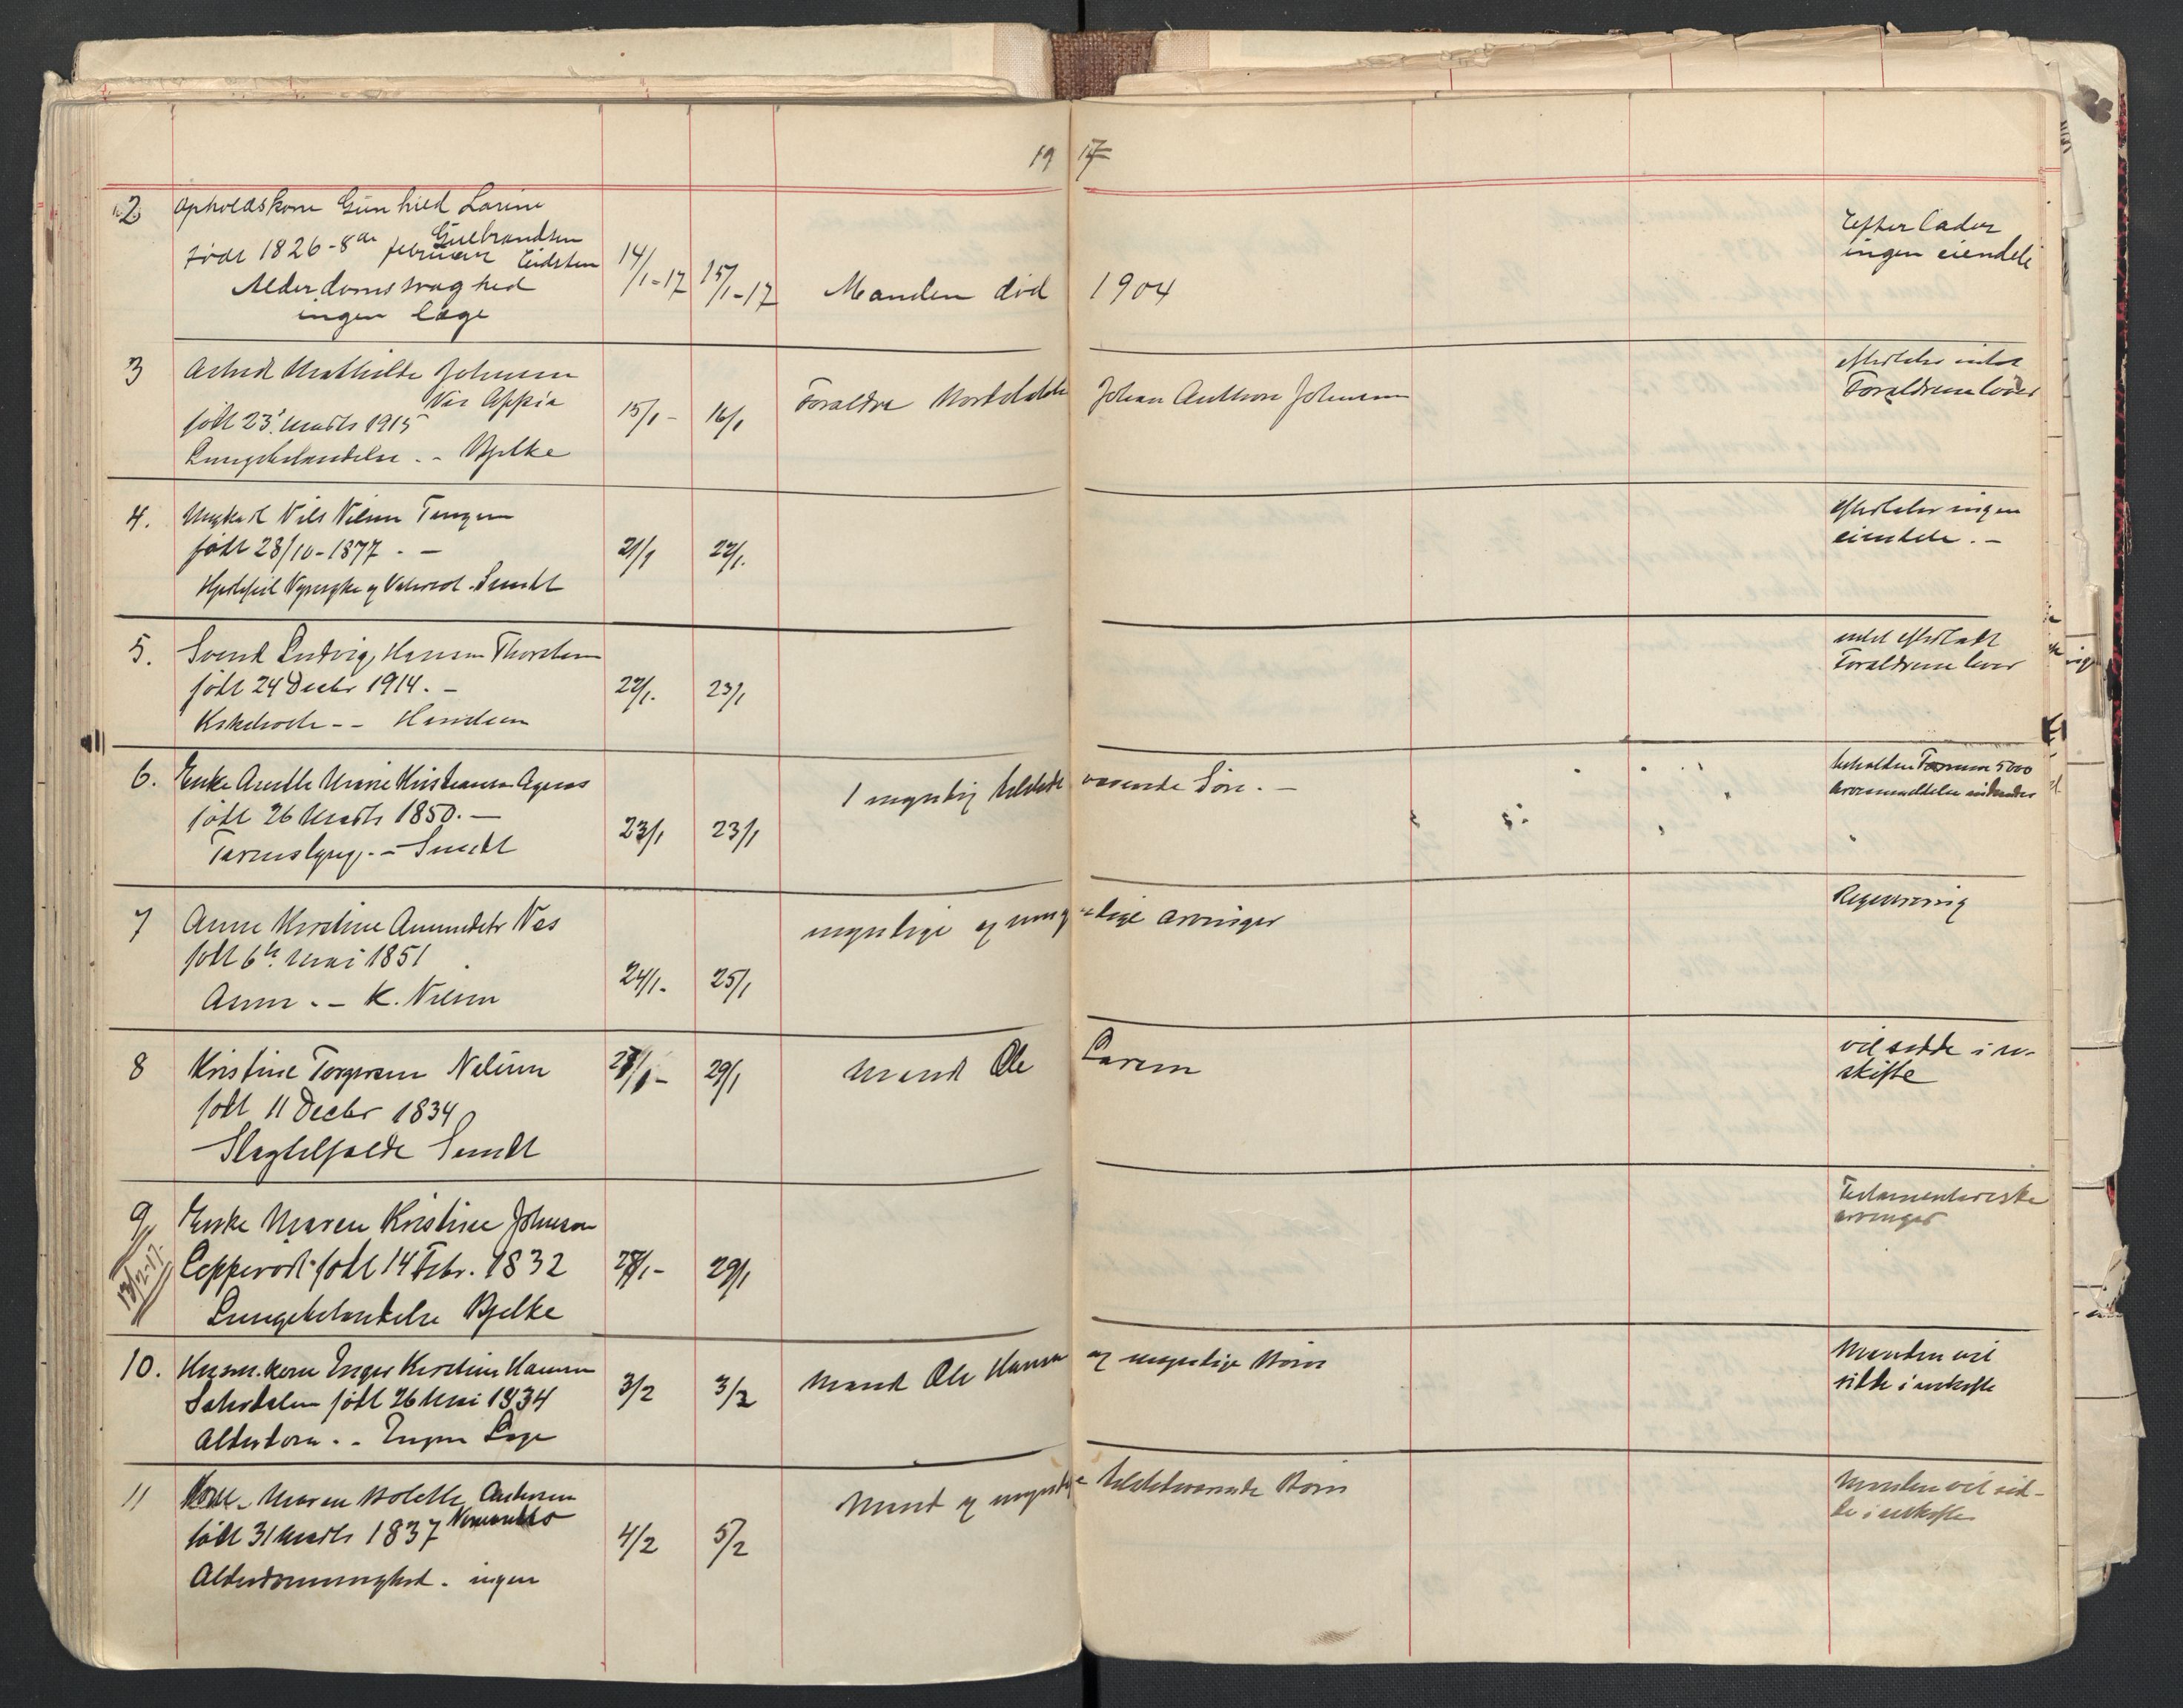 19 17
2 Opholdskone Gunhild Larine
Gulbrandsen
Født 1826-8de februar Eidsten
Alderdomssvaghed
ingen læge
14/1-17 15/1-17 Manden død 1904
Efterlader
ingen eiendele
3 Astrid Mathilde Johnsen
Næs
født 23. Marts 1915
Lungebetændelse - Bjelke
15/1- 16/1 Forældre Johan Anthon Johnsen
Forældrene lever
4. Nils Nilsen Tangen
født 28/10-1877 . -
Hjertefeil Nyresyke og
21/1 22/1.
efterlader ingen
eiendele . -
5. Svend Ludvig Hansen Thorsten
født 24 Decbr 1914. -
22/1. 23/1
intet efterladt
Forældrene lever
6. Enke Marie Kristiansen
født 26 Marts 1850. -
23/1 23/1
1 myndig tilstedeværende Søn. -
beholden Formue 5000
7 Anne Kirstine Amundsdtr Næs
født 6te Mai 1851
- K. Nilsen
24/1- 25/1
myndige og umyndige arvinger
8 Kristine Torgersen Nalum
født 11 Decbr 1834
Slagtilfælde
28/1- 29/1 Mand Ole Larsen
vil sidde i u-
skifte
9 Enke Maren Kristine Johnson
født 14 Febr. 1832
Lungebetændelse Bjelke
13/2-17.
28/1- 29/1
Testamentariske
arvinger
10. Husm.kone Inger Kirstine Hansen
født 26 Mai 1834
Alderdom . - Ingen Læge
3/2 3/2 Mand Ole Hansen og myndige Børn
Manden vil
sidde i uskifte
11 Kone - Maren Bolette Andersen
født 31 Marts 1837
Alderdomssvaghed - ingen
4/2 5/2
Mand og myndige tilstedeværende Børn
Manden vil sid-
de i uskifte